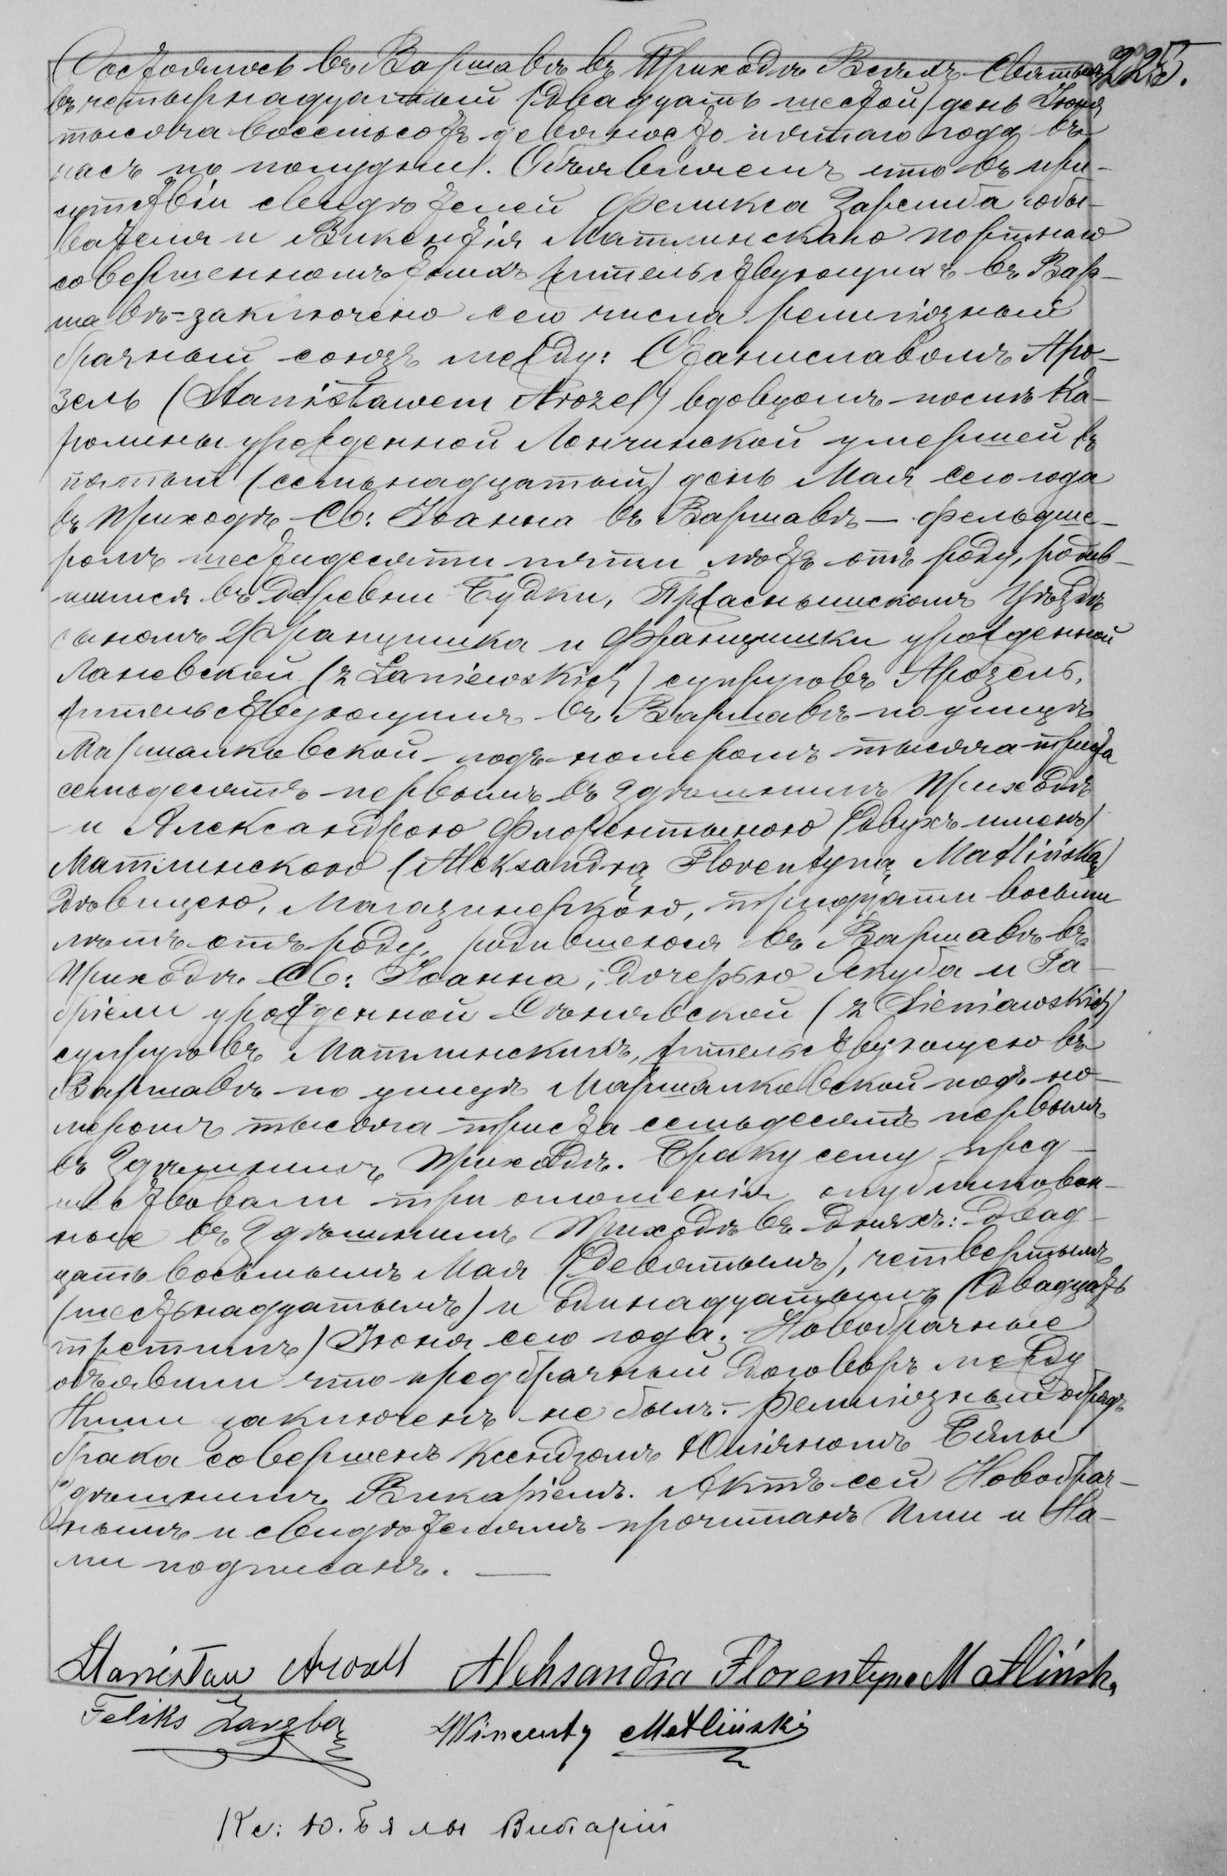 225.
Состоялось въ Варшавѣ въ Приходѣ Всѣхъ Святыхъ
въ четырнадцатый (двадцать шестой) день Іюня
тысяча восемьсотъ девяносто пятаго года въ
часъ по полудни. Объявляемъ что въ при-
сутствіи свидѣтелей Феликса Заремба обы-
вателя и Викентія Матлинскаго портнаго
совершеннолѣтнихъ жительствующихъ въ Вар-
шавѣ – заключено сего числа религіозный
брачный союзъ между: Станиславомъ Аро-
зель (Stanisławem Arozel) вдовцомъ послѣ Ка-
ролины урожденной Лончинской умершей въ
пятый (семьнадцатый) день Мая сего года
въ Приходѣ Св: Іоанна въ Варшавѣ – фельдше-
ромъ шестидесяти пяти лѣтъ отъ роду, родив-
шимся въ деревни Будки, Прасмышскомъ Уѣздѣ
сыномъ Францишка и Францишки урожденной
Ланевской (z Laniewskich) супруговъ Арозель,
жительствующимъ въ Варшавѣ по улицѣ
Маршалковской подъ номеромъ тысяча триста
семьдесятъ первымъ въ здѣшнимъ Приходѣ
– и Александрою Флорентыною (двухъ именъ)
Матлинского (Aleksandrą Florentyną Matlińską)
дѣвицею, магазинеркою, тридцати восьми
лѣтъ отъ роду, родившеюся въ Варшавѣ въ
Приходѣ Св: Іоанна, дочерью Якуба и Га-
бріели урожденной Сѣнявской (z Sieniawskich)
супруговъ Матлинскихъ, жительствующею въ
Варшавѣ по улицѣ Маршалковской подъ но-
меромъ тысяча триста семьдесятъ первымъ
въ здѣшнимъ Приходѣ. Браку сему пред-
шествовали три оглошенія опубликован-
ные въ здѣшнимъ Приходѣ въ дняхъ: двад-
цать восьмымъ Мая (девятымъ), четвертымъ
(шестьнадцатымъ) и одинадцатымъ (двадцать
третимъ) Іюня сего года. Новобрачные
объявили что предбрачный договоръ между
Ними заключенъ не былъ. – Религіозный обрядъ
брака совершенъ Ксендзомъ Юліяномъ Бялы
здѣшнимъ Викаріемъ. Актъ сей Новобрач-
нымъ и свидѣтелямъ прочитанъ Ими и На-
ми подписанъ. —
Stanisław Arozel Aleksandra Florentyna Matlińska
Feliks Zaręba Wincenty Matliński
Кс: Ю. Бялы Викарій